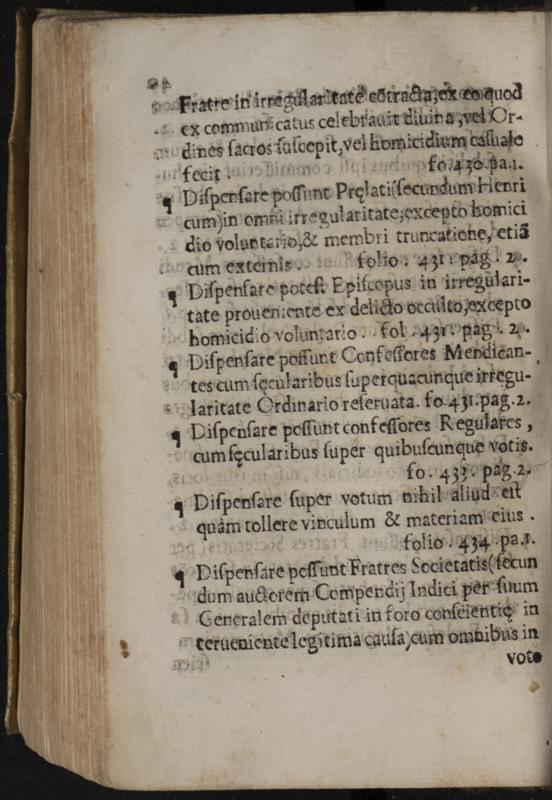 Fratre in irregularitate cõtracta, ex eo quod
ex communicatus celebrauit diuina, vel Or-
dines sacros suscepit, vel homicidium casuale
fecit fo. 430. pa. 1.
¶ Dispensare possunt Pręlati (secundum Henri
cum) in omni irregularitate, excepto homici
dio voluntario, & membri truncatione, etiã
cum externis. folio. 431. pag. 2.
¶ Dispensare potest Episcopus in irregulari-
tate proueniente ex delicto occulto, excepto
homicidio voluntario. fol. 431. pag. 2.
¶ Dispensare possunt Confessores Mendican-
tes cum sęcularibus super quacunque irregu-
laritate Ordinario reseruata. fo. 431. pag. 2.
¶ Dispensare possunt confessores Regulares,
cum sęcularibus super quibuscunque votis.
fo. 433. pag. 2.
¶ Dispensare super votum nihil aliud est
quàm tollere vinculum & materiam eius.
folio. 434. pa. 1.
¶ Dispensare possunt Fratres Societatis (secun
dum auctorem Compendij Indici per suum
Generalem deputati in foro conscientię in
terueniente legitima causa) cum omnibus in
voto